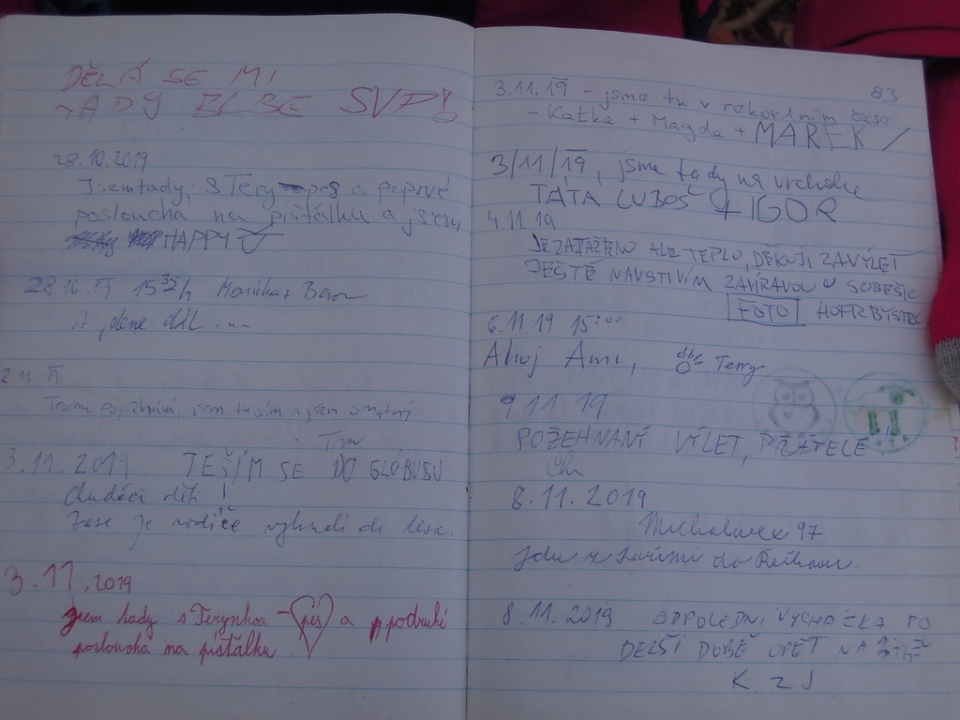 DĚLÁ SE MI
TADY ZLE SVP!
28.10.2019
Jsem tady, s Tery pes a poprvé
poslouchá na píšťalku a jsem
HAPPY
28.10. 15 h Monika +
A jdeme dál ...
jsem tu sám a jsem smutný
Tom
3.11.2019 TEŠÍM SE DO GLÓBUSU
Chudáci děti!
Zase je rodiče vyhnali do lesa.
3.11.2019
Jsem tady s Terynkou - pes a podruhé
poslouchá na píšťalku.
83
3.11.19 - jsme tu v rekordním čase
- Katka + Magda + MAREK
3/11/19, jsme tady na vrcholu
TÁTA LUBOŠ + IGOR
4.11.19
JE ZATAŽENO ALE TEPLO, DĚKUJI ZA VÝLET
JEŠTĚ NAVŠTÍVÍM ZAVÍRAVOU U SOBĚŠIC
FOTO
6.11.19 15:00
Ahoj Ami, Terry
9.11.19
POŽEHNANÝ VÝLET, PŘÁTELÉ!
8.11.2019
97
Jdu z do
8.11.2019 ODPOLEDNÍ VYCHÁZKA PO
DELŠÍ DOBĚ OPĚT NA
K. z J